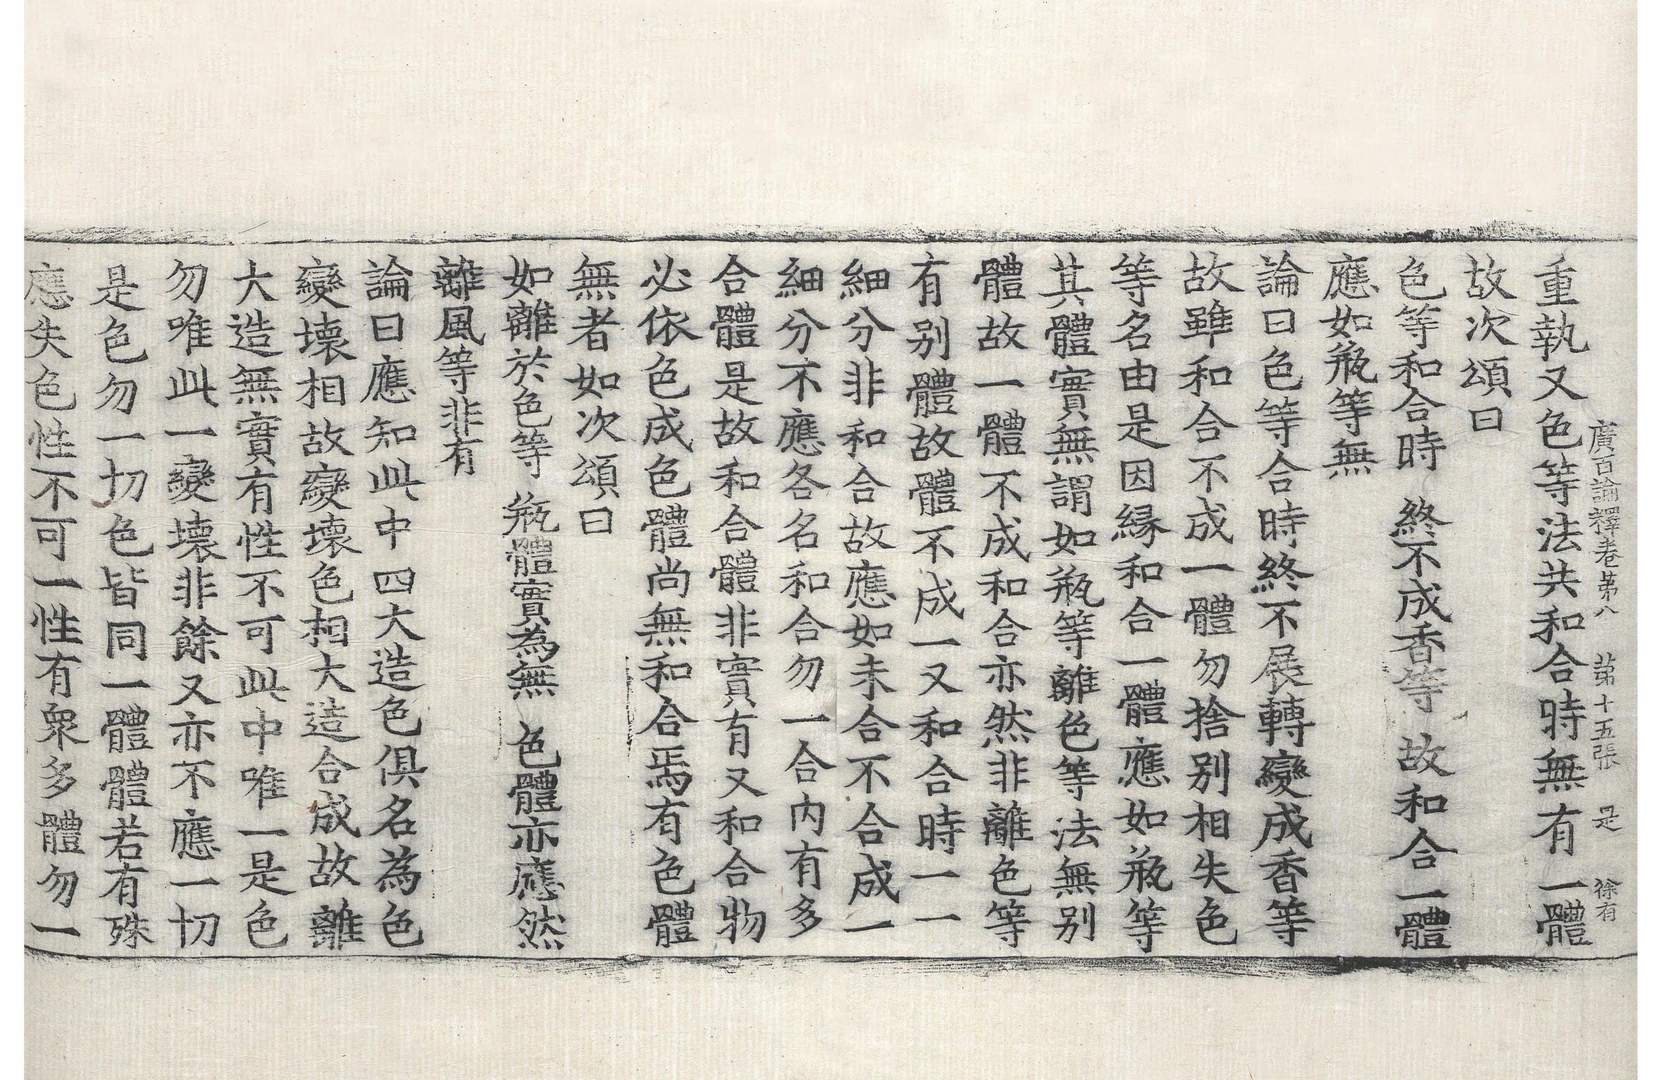 廣百論釋卷第八　第十五張　是　徐有
重執又色等法共和合時無有一體
故次頌曰
色等和合時　終不成香等　故和合一體
應如瓶等無
論曰色等合時終不展轉變成香等
故雖和合不成一體勿捨別相失色
等名由是因緣和合一體應如瓶等
其體實無謂如瓶等離色等法無別
體故一體不成和合亦然非離色等
有別體故體不成一又和合時一一
細分非和合故應如未合不合成一
細分不應各名和合勿一合內有多
合體是故和合體非實有又和合物
必依色成色體尚無和合焉有色體
無者如次頌曰
如離於色等　瓶體實為無　色體亦應然
離風等非有
論曰應知此中四大造色俱名為色
變壞相故變壞色相大造合成故離
大造無實有性不可此中唯一是色
勿唯此一變壞非餘又亦不應一切
是色勿一切色皆同一體體若有殊
應失色性不可一性有衆多體勿一